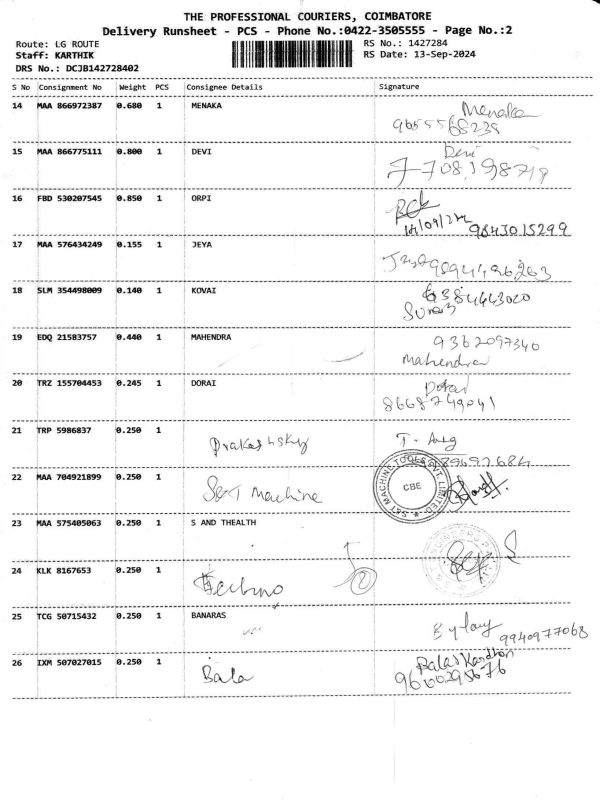 THE PROFESSIONAL COURIERS, COIMBATORE
Delivery Runsheet - PCS - Phone No.:0422-3505555 - Page No.:2
Route: LG ROUTE RS No.: 1427284
Staff: KARTHIK RS Date: 13-Sep-2024
DRS No.: DCJB142728402
S No Consignment No Weight PCS Consignee Details Signature
14 MAA 866972387 0.680 1 MENAKA Menaka
15 MAA 866775111 0.800 1 DEVI Devi
7708198718
16 FBD 530207545 0.850 1 ORPI
9843015299
17 MAA 576434249 0.155 1 JEYA
18 SLM 354498009 0.140 1 KOVAI
19 EDQ 21583757 0.440 1 MAHENDRA 9362097340
Mahendra
20 TRZ 155704453 0.245 1 DORAI Dorai
8668749041
21 TRP 5986837 0.250 1 Prakash sky
22 MAA 704921899 0.250 1 S&T Machine S&T MACHINE TOOLS PVT. LIMITED CBE
23 MAA 575405063 0.250 1 S AND THEALTH
24 KLK 8167653 0.250 1 Techno
25 TCG 50715432 0.250 1 BANARAS
9940977068
26 IXM 507027015 0.250 1 Bala
9600295676